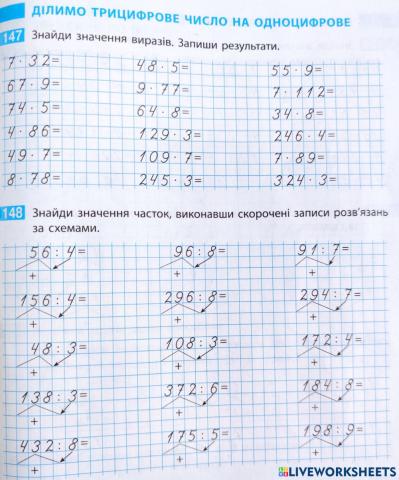 ДІЛИМО ТРИЦИФРОВЕ ЧИСЛО НА ОДНОЦИФРОВЕ
147 Знайди значення виразів. Запиши результати.
7 · 32= 48 · 5= 55 · 9=
67 · 9= 9 · 77= 7 · 112=
74 · 5= 64 · 8= 34 · 8=
4 · 86= 129 · 3= 246 · 4=
49 · 7= 109 · 7= 7 · 89=
8 · 78= 245 · 3= 324 · 3=
148 Знайди значення часток, виконавши скорочені записи розв'язань
за схемами.
56 : 4= 96 : 8= 91 : 7=
+ + +
156 : 4= 296 : 8= 294 : 7=
+ + +
48 : 3= 108 : 3= 172 : 4=
+ + +
138 : 3= 372 : 6= 184 : 8=
+ + +
432 : 8= 175 : 5= 198 : 9=
+ + +
LIVEWORKSHEETS